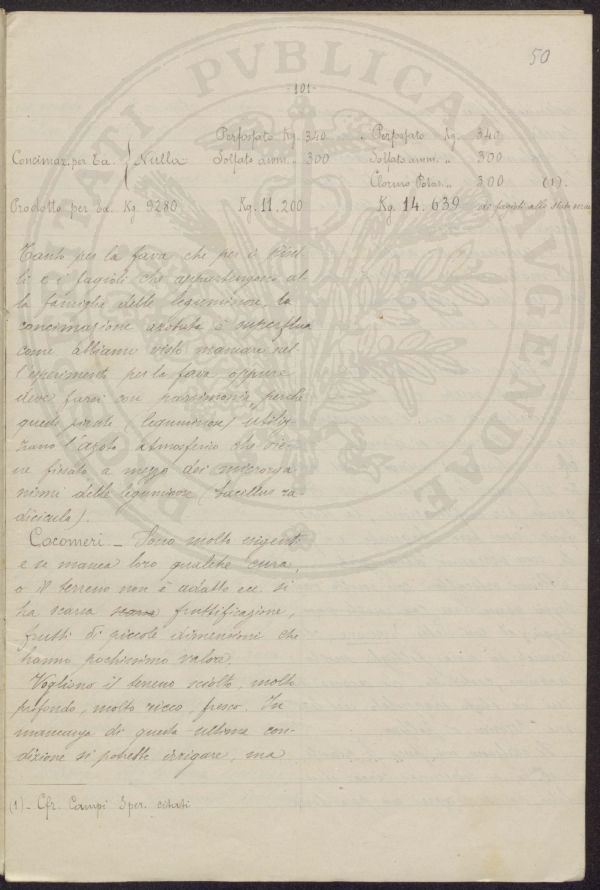 50
-101-
Perfosfato Kg. 340 " Perfosfato Kg. 340
Concimaz. per Ea. { Nulla Solfato amm. " 300 Solfato amm. " 300
Cloruro Potas. " 300 (1).
Prodotto per Ea. Kg 9280 Kg. 11.200 Kg. 14.639 di fagioli allo stato
Tanto per la fava che per i Pisel-
li e i fagioli che appartengono al-
la famiglia delle leguminose, la
concimazione azotata è superflua
come abbiamo visto mancare nel-
l'esperimento per la fava oppure
deve farsi con parsimonia perchè
queste piante (leguminose) utiliz-
zano l'azoto atmosferico che vie-
ne fissato a mezzo dei microrga-
nismi delle leguminose (bacillus ra-
dicicula).
Cocomeri - Sono molto esigenti
e se manca loro qualche cura,
o il terreno non è adatto ecc. si
ha scarsa scarsa fruttificazione,
frutti di piccole dimensioni che
hanno pochissimo valore.
Vogliono il terreno sciolto, molto
profondo, molto ricco, fresco. In
mancanza di questa ultima con-
dizione si potrebbe irrigare, ma
(1) - Cfr. Campi Sper. citati
PUBLICAE UTILITATI AUGENDAE